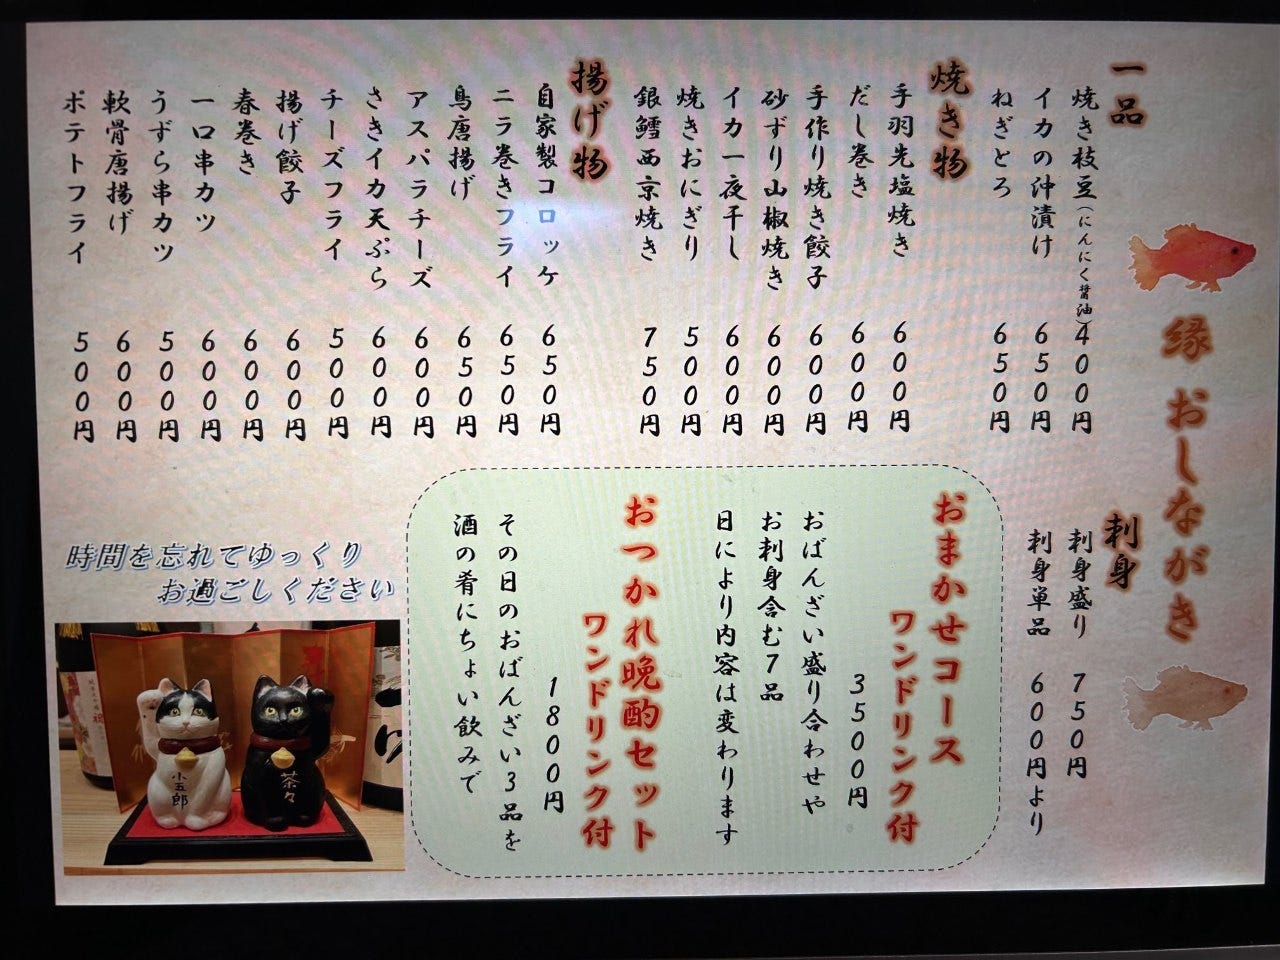 縁 おしながき
一品
焼き枝豆(にんにく醤油)400円
イカの沖漬け 650円
ねぎとろ 650円
焼き物
手羽先塩焼き 600円
だし巻き 600円
手作り焼き餃子 600円
砂ずり山椒焼き 600円
イカ一夜干し 600円
焼きおにぎり 500円
銀鱈西京焼き 750円
揚げ物
自家製コロッケ 650円
ニラ巻きフライ 650円
鳥唐揚げ 650円
アスパラチーズ 600円
さきイカ天ぷら 600円
チーズフライ 500円
揚げ餃子 600円
春巻き 600円
一口串カツ 600円
うずら串カツ 500円
軟骨唐揚げ 600円
ポテトフライ 500円
刺身
刺身盛り 750円
刺身単品 600円より
おまかせコース
ワンドリンク付
3500円
おばんざい盛り合わせや
お刺身含む7品
日により内容は変わります
おつかれ晩酌セット
ワンドリンク付
1800円
その日のおばんざい3品を
酒の肴にちょい飲みで
時間を忘れてゆっくり
お過ごしください
小五郎
茶々